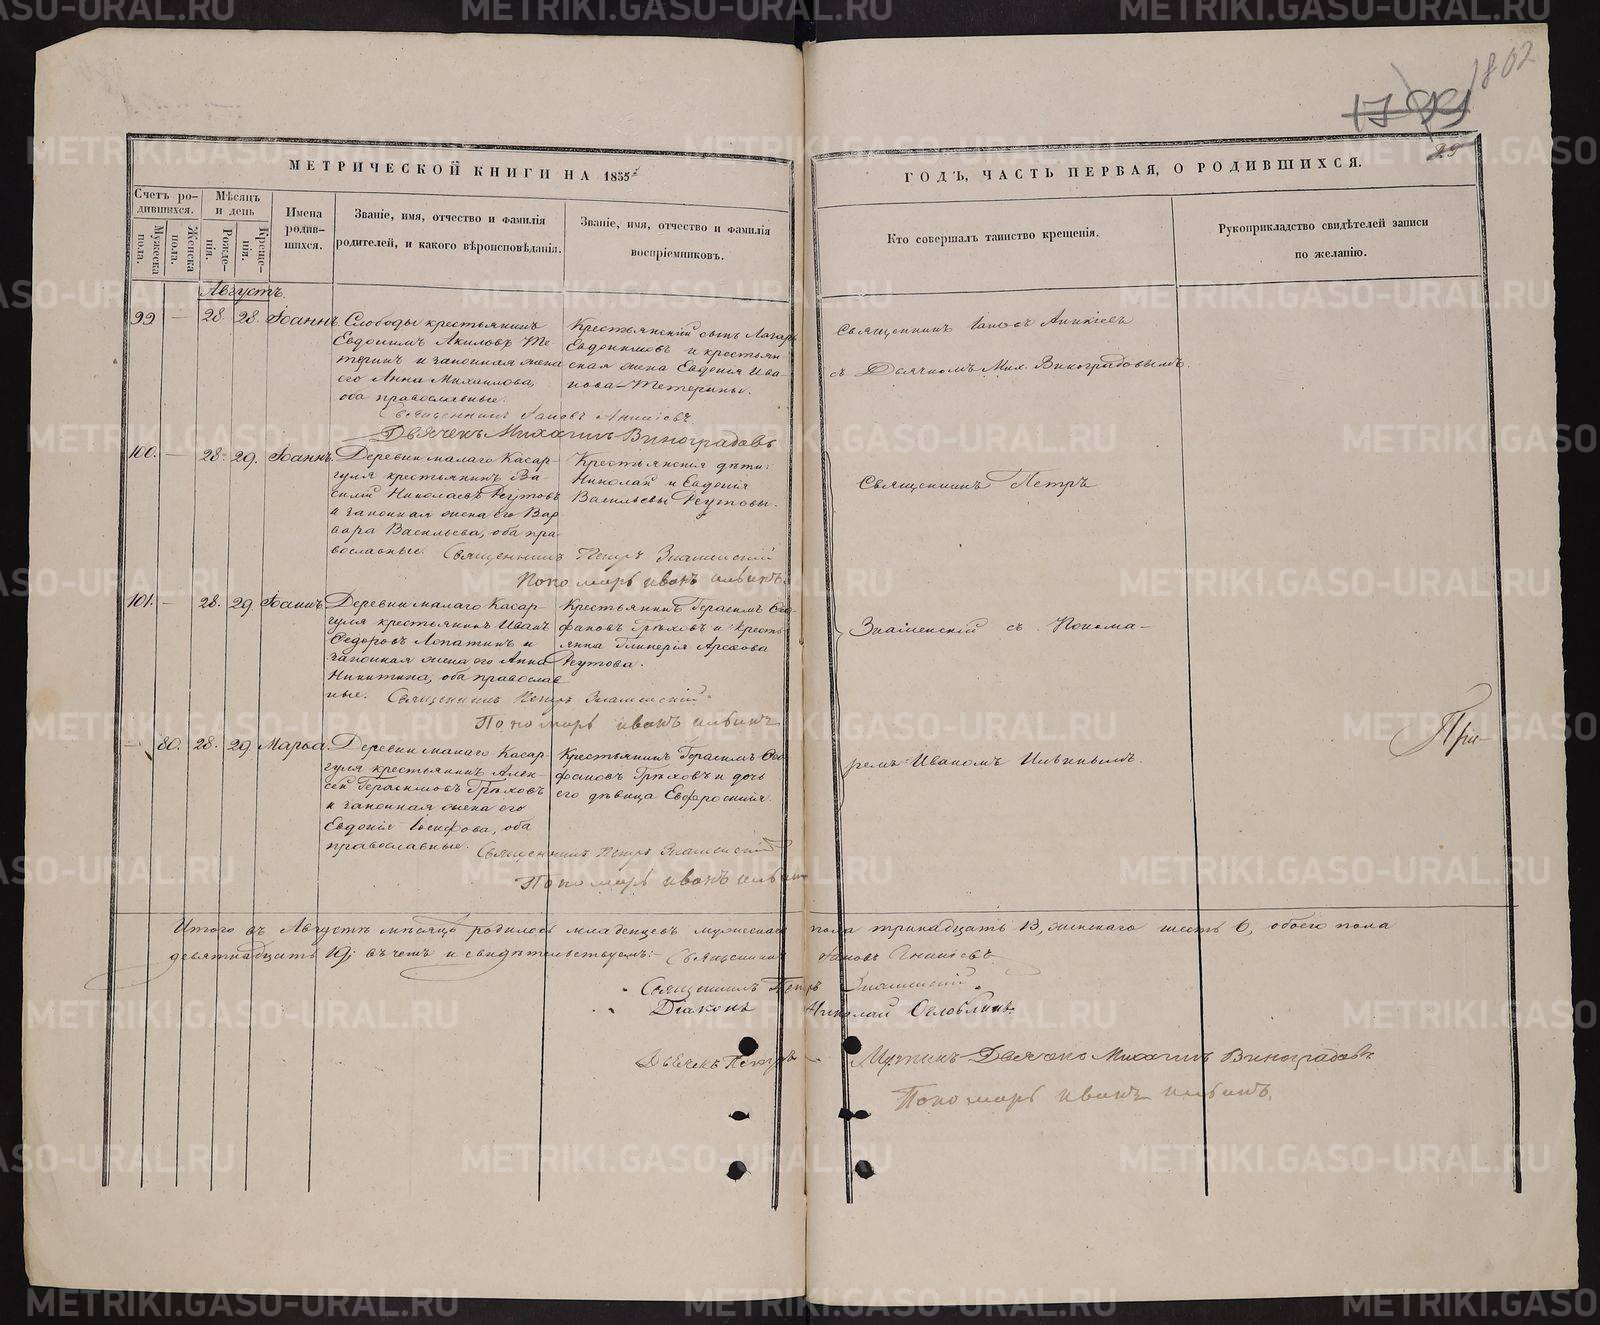 1802
МЕТРИЧЕСКОЙ КНИГИ НА 1855
ГОДЪ, ЧАСТЬ ПЕРВАЯ, О РОДИВШИХСЯ.
Счетъ родившихся.
Мужеска пола.
Женска пола.
Мѣсяцъ и день
Рожденія.
Крещенія.
Имена родившихся.
Званіе, имя, отчество и фамилія
родителей, и какого вѣроисповѣданія.
Званіе, имя, отчество и фамилія
воспріемниковъ.
Кто совершалъ таинство крещенія.
Рукоприкладство свидѣтелей записи
по желанію.
Августъ.
99 — 28. 28. Іоаннъ.
Слободы крестьянинъ
Евдокимъ Акиловъ Те-
теринъ и законная жена
его Анна Михаилова,
оба православные.
Крестьянскій сынъ Лазарь
Евдокимовъ и крестьян-
ская жена Евдокія Ива-
нова Тетерины.
Священникъ Іаковъ Аникіевъ
съ Дьячкомъ Мих. Виноградовымъ.
Священникъ Іаковъ Аникіевъ
Дьячекъ Михаилъ Виноградовъ
100. — 28. 29. Іоаннъ.
Деревни малаго Касар-
гуля крестьянинъ Ва-
силій Николаевъ Реутовъ
и законная жена его Вар-
вара Васильева, оба пра-
вославные.
Крестьянскія дѣти:
Николай и Евдокія
Васильевы Реутовы.
Священникъ Петръ
Священникъ Петръ Знаменскій
Пономарь иванъ ильинъ.
101. — 28. 29 Іоаннъ.
Деревни малаго Касар-
гуля крестьянинъ Иванъ
Федоровъ Лопатинъ и
законная жена его Анна
Никитина, оба православ
ные.
Крестьянинъ Герасимъ Фео-
фановъ Грѣховъ и кресть-
янка Гликерія
Реутова.
Знаменскій съ Понома-
Священникъ Петръ Знаменскій.
Пономарь иванъ ильинъ
— 80. 28. 29 Марѳа.
Деревни малаго Касар-
гуля крестьянинъ Алек-
сѣй Герасимовъ Грѣховъ
и законная жена его
Евдокія Іосифова, оба
православные.
Крестьянинъ Герасимъ Фео-
фановъ Грѣховъ и дочь
его дѣвица Евфросинія.
ремъ Иваномъ Ильинымъ.
При-
Священникъ Петръ Знаменскій
Пономарь иванъ ильинъ
Итого въ Августѣ мѣсяцѣ родилось младенцевъ мужескаго пола тринадцать 13, женскаго шесть 6, обоего пола
девятнадцать 19; въ чемъ и свидѣтельствуемъ: Священникъ Іаковъ Аникіевъ
Священникъ Петръ Знаменскій.
Діаконъ Николай
Дьячекъ Петръ
Дьячекъ Михаилъ Виноградовъ
Пономарь иванъ ильинъ.
METRIKI.GASO-URAL.RU